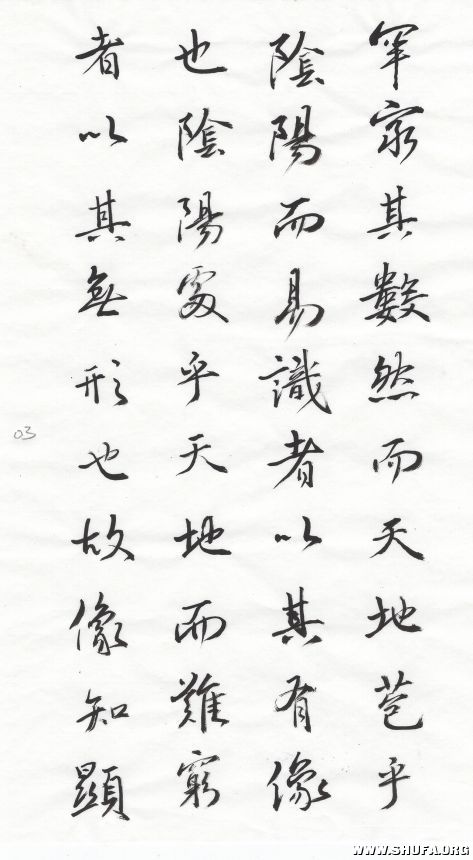 罕窮其數然而天地苞乎
陰陽而易識者以其有像
也陰陽處乎天地而難窮
者以其無形也故像知顯
03
WWW.SHUFA.ORG